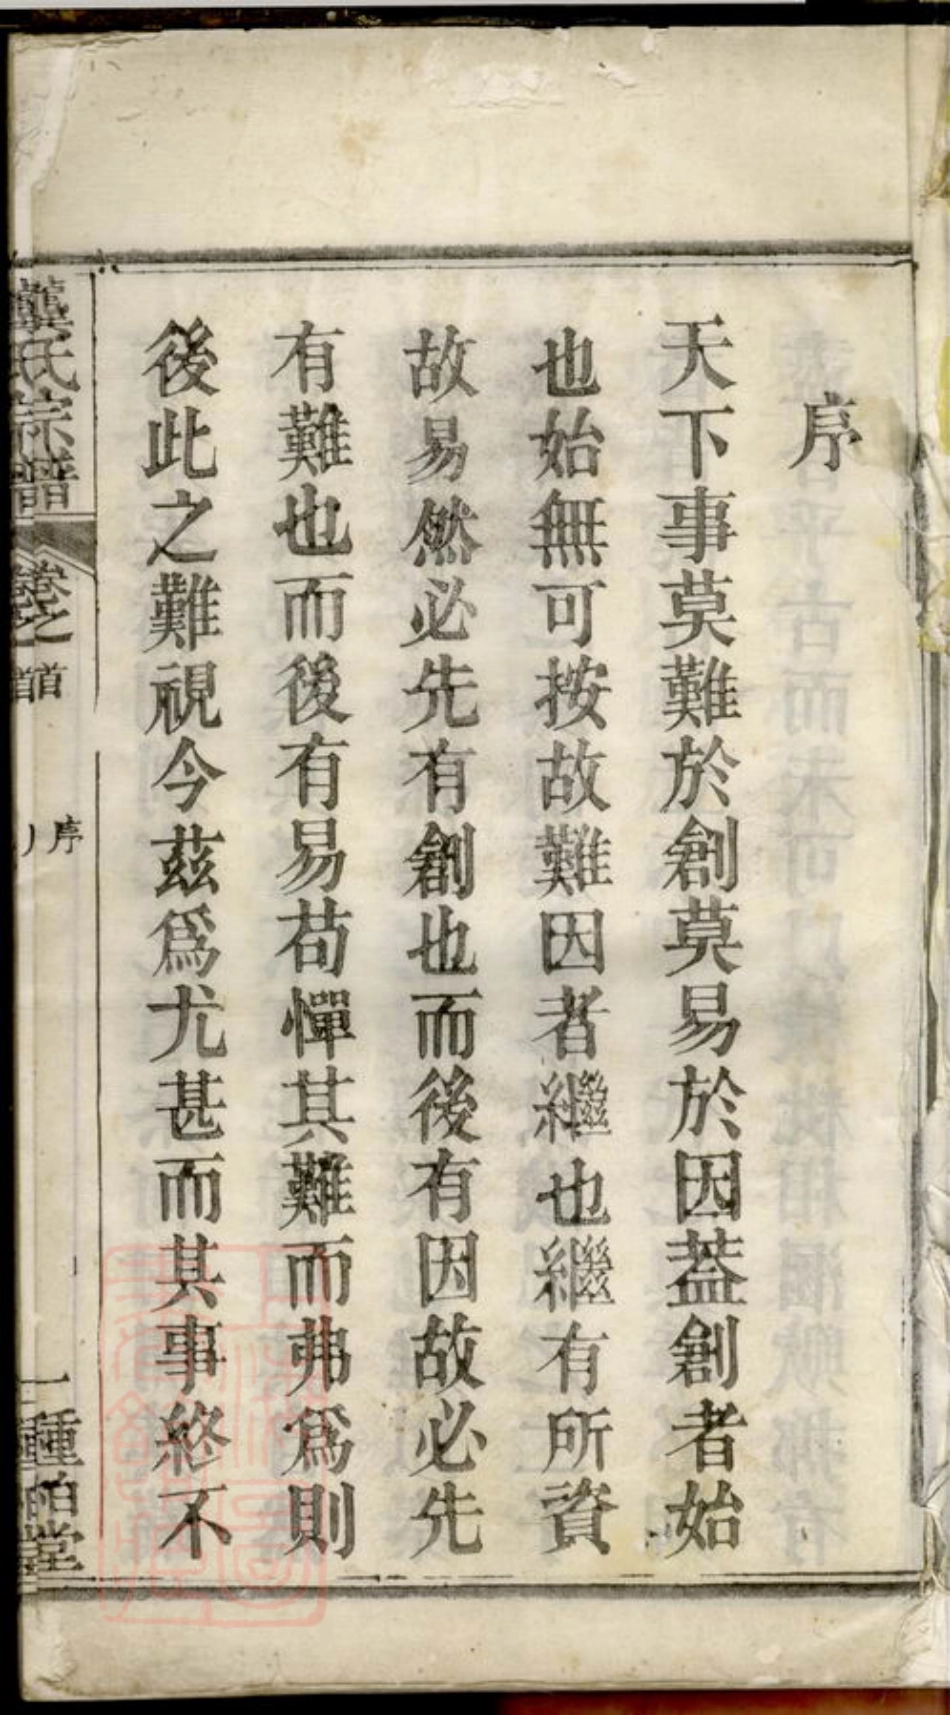 序
天下事莫難於創莫易於因葢創者始
也始無可按故難因者繼也繼有所資
故易然必先有創也而後有因故必先
有難也而後有易苟憚其難而弗爲則
後此之難視今茲爲尤甚而其事終不
龔氏宗譜
卷之首
序
一
種柏堂